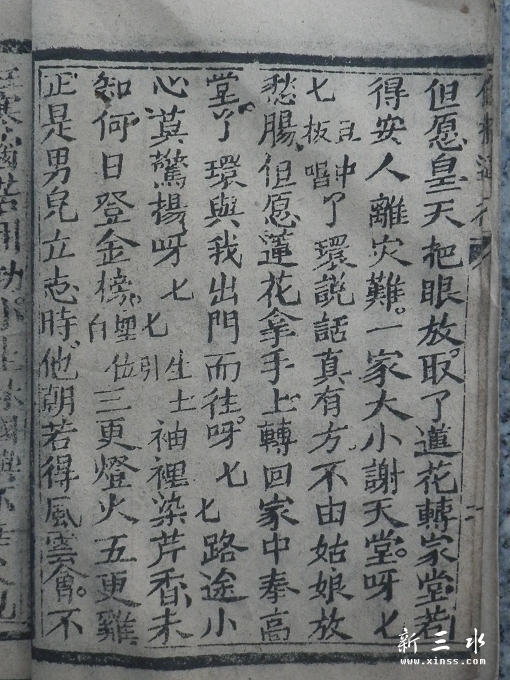 但愿皇天把眼放。取了蓮花轉家堂。若
得安人離灾難。一家大小謝天堂。呀七
七板唱 旦中丫環説話真有方。不由姑娘放
愁腸。但愿蓮花拿手上。轉回家中奉高
堂。丫環與我出門而往。呀七七路途小
心莫驚揚。呀七七引 生土袖裡染芹香。未
知何日登金榜。白 埋位三更燈火五更雞
正是男兒立志時。他朝若得風雲會。不
二
新三水
www.xinss.com